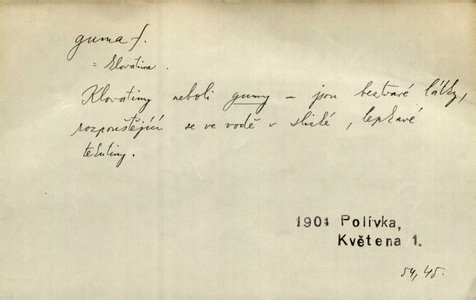 guma f.
= klovatina.
Klovatiny neboli gumy – jsou beztvaré látky,
rozpouštějící se ve vodě v slizké, lepkavé
tekutiny.
1901 Polívka,
Květena 1.
54, 45.